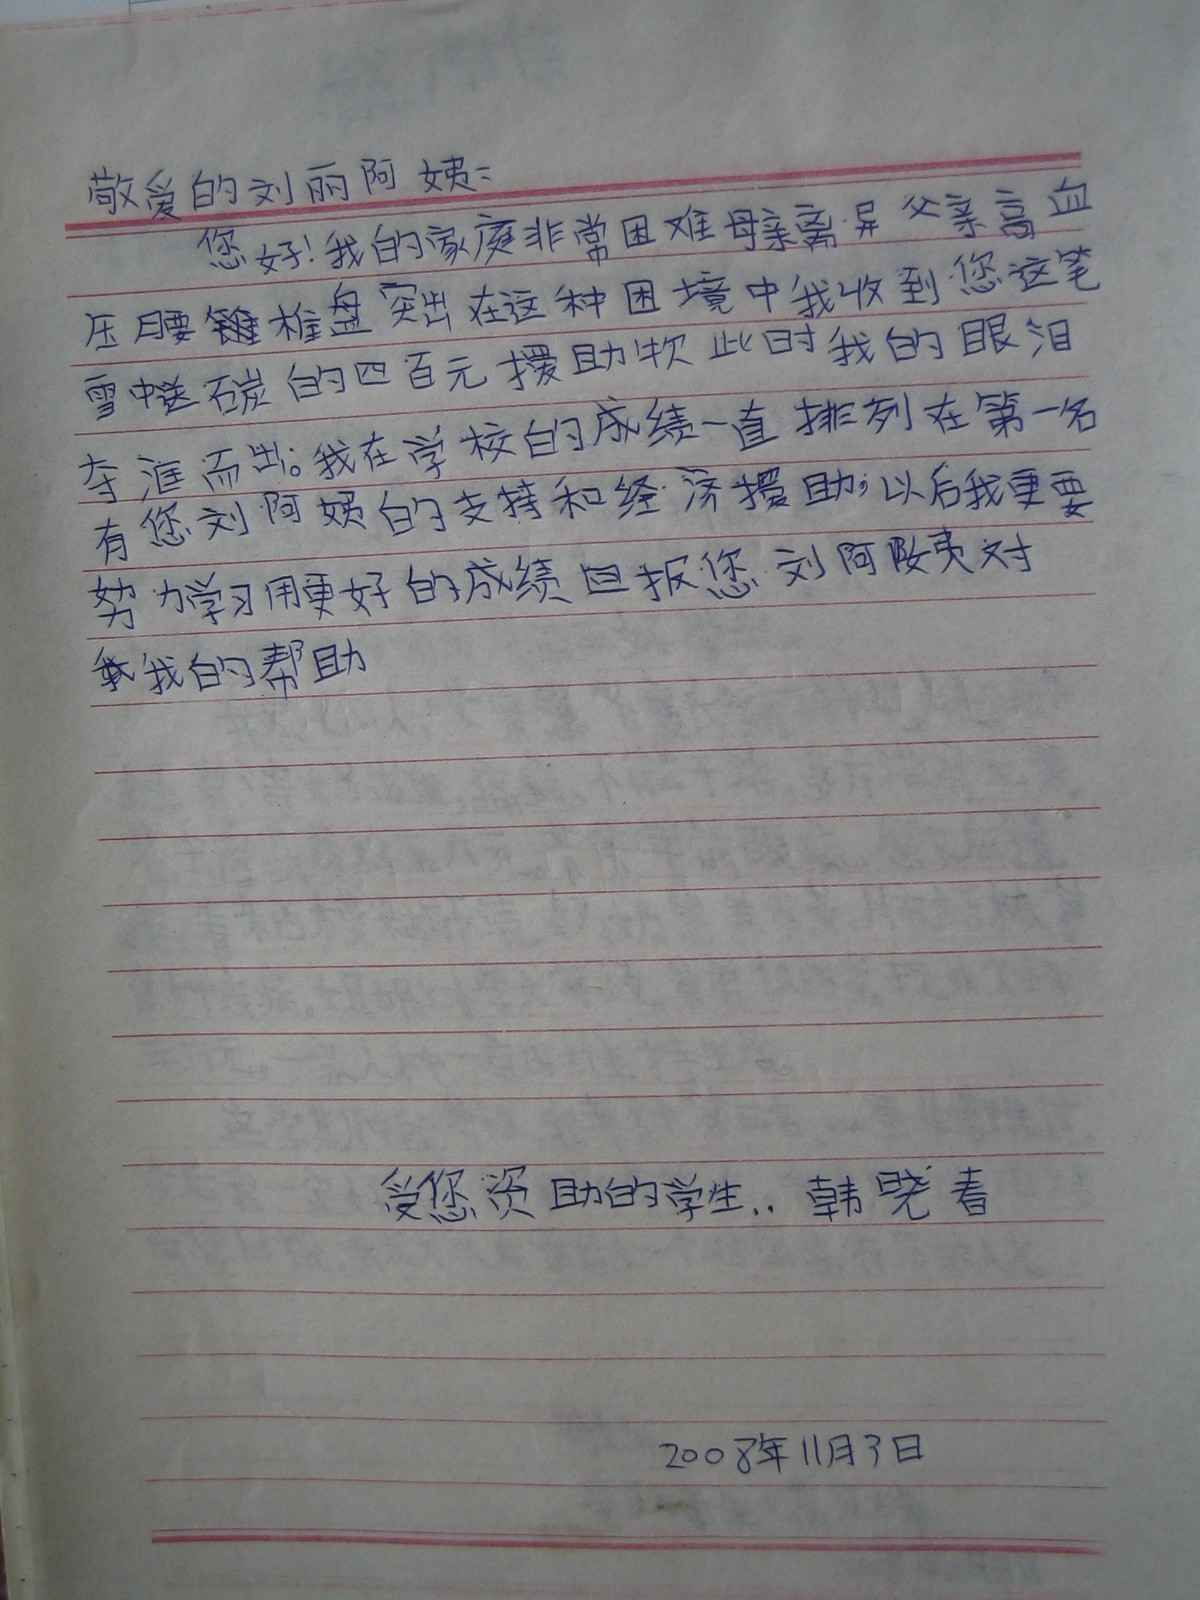 敬爱的刘丽阿姨：
您好！我的家庭非常困难母亲离异父亲高血
压腰椎盘突出在这种困境中我收到您这笔
雪中送碳的四百元援助款此时我的眼泪
夺淮而出。我在学校的成绩一直排列在第一名
有您刘阿姨的支持和经济援助，以后我更要
努力学习用更好的成绩回报您刘阿姨对
我的帮助
受您资助的学生：韩晓春
2008年11月3日